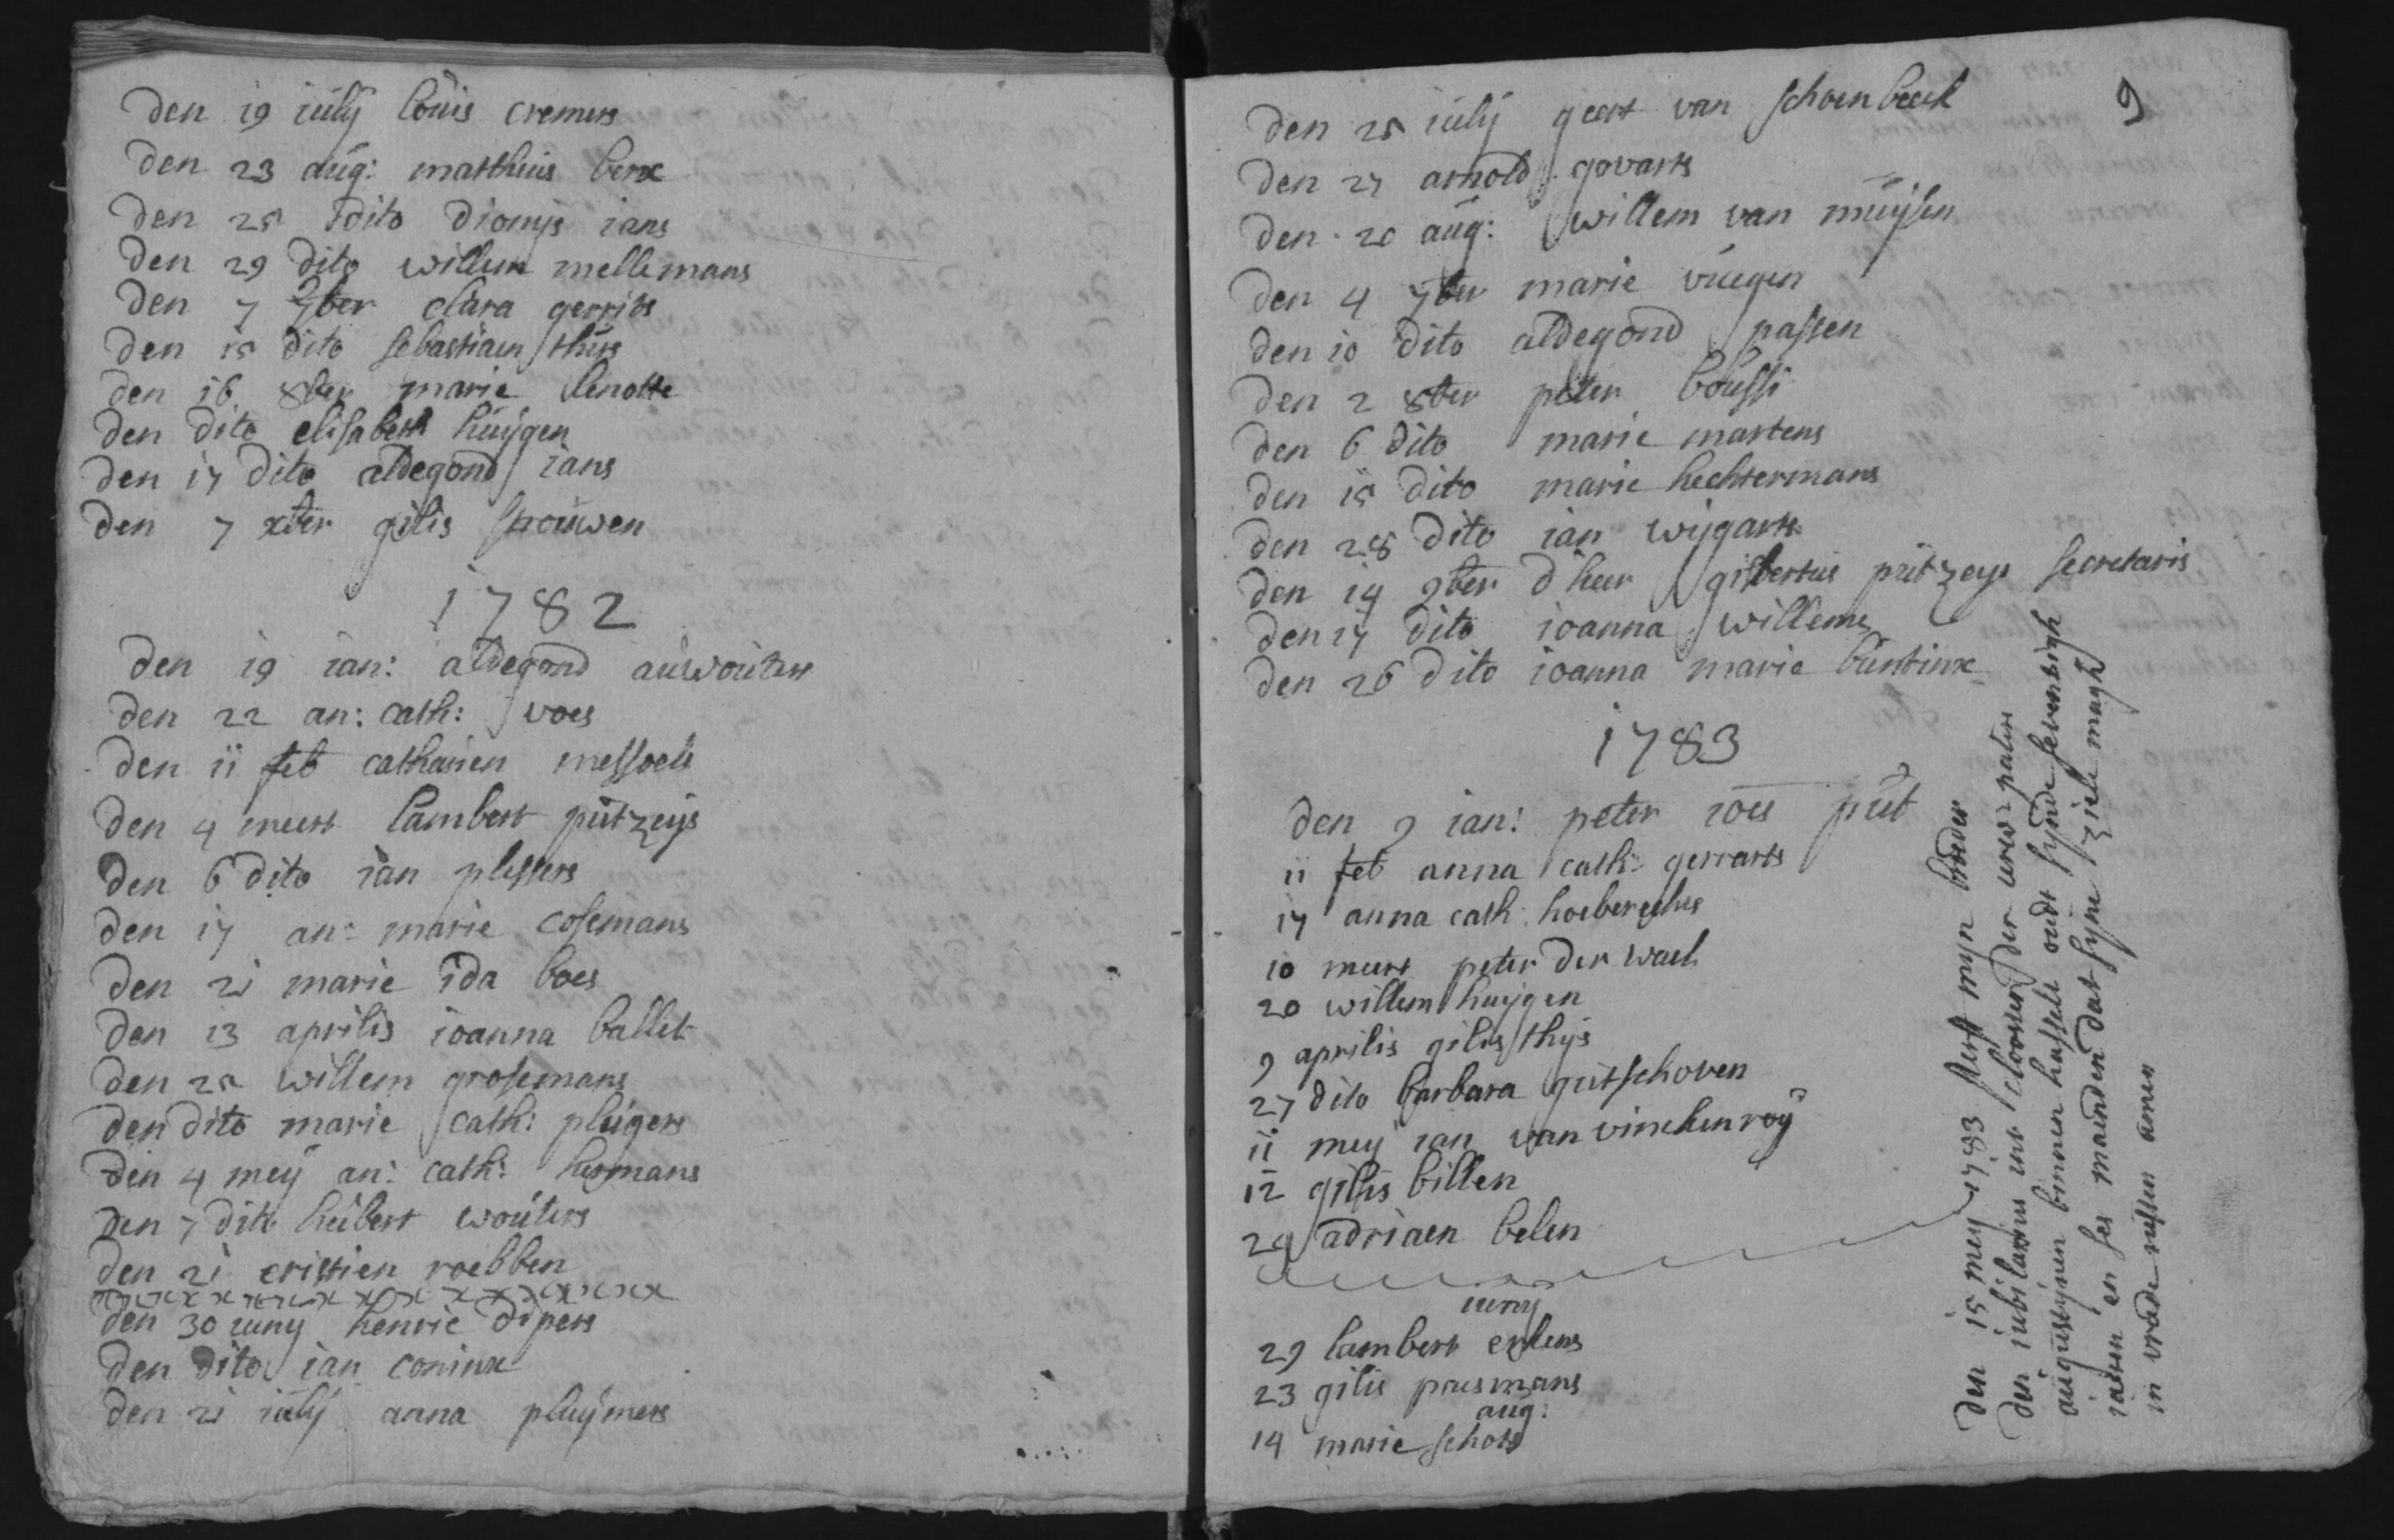 den 19 iulij louis cremers
den 23 aug: mattheus berx
den 25 dito dionys ians
den 29 dito willem mellemans
den 7 9ber clara gerrits
den 15 dito sebastiaen thijs
den 16 8ber marie lenotte
den dito elisabeth huijgen
den 17 dito aldegond ians
den 7 xber gilis spouwen
1782
den 19 ian: aldegond auwouters
den 22 an: cath: voes
den 11 feb catharien messoels
den 4 meert lambert putzeijs
den 6 dito ian plessers
den 17 an: marie cosemans
den 21 marie ida boes
den 13 aprilis ioanna ballet
den 25 willem grosemans
den dito marie cath: plugers
den 4 meij an: cath: hermans
den 7 dito hubert wouters
den 21 cristien roebben
den 30 iunij henric dipers
den dito ian coninx
den 21 iulij anna pluijmers
9
den 25 iulij geert van schoenbeeck
den 27 arnold govarts
den 20 aug: willem van muijsen
den 4 7ber marie vuegen
den 10 dito aldegond passen
den 2 8ber peter boussi
den 6 dito marie martens
den 15 dito marie hechtermans
den 28 dito ian wijgarts
den 14 9ber d heer gisbertus putzeys secretaris
den 17 dito ioanna willems
den 26 dito ioanna marie buntinx
1783
den 9 ian: peter ioes put
11 feb anna cath: gerrarts
17 anna cath: hoeberechts
10 meert peter der wael
20 willem huijgen
9 aprilis gilis thijs
27 dito barbara gutschoven
11 meij ian van vinckenroij
12 gilis billen
29 adriaen belen
iunij
29 lambert erkens
23 gilis praesmans
aug:
14 marie schots
den 15 meij 1783 sterf mijn broeder
den iubilarius int clooster der eerw: paters
augustijnen binnen hasselt oudt sijnde seventigh
iaeren en ses maenden dat sijne ziele magh
in vrede rusten amen